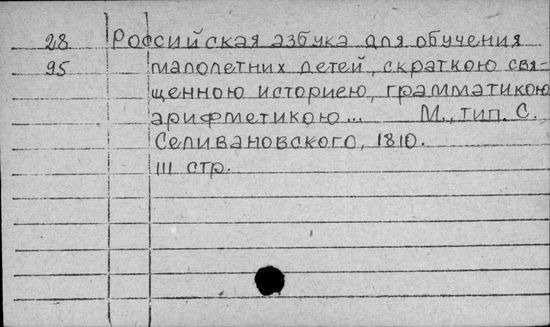 28 Российская азбука для обучения
95 малолетних детей, скраткою свя-
щенною историею, грамматикою
арифметикою... М., тип. С.
Селивановского, 1810.
III стр.